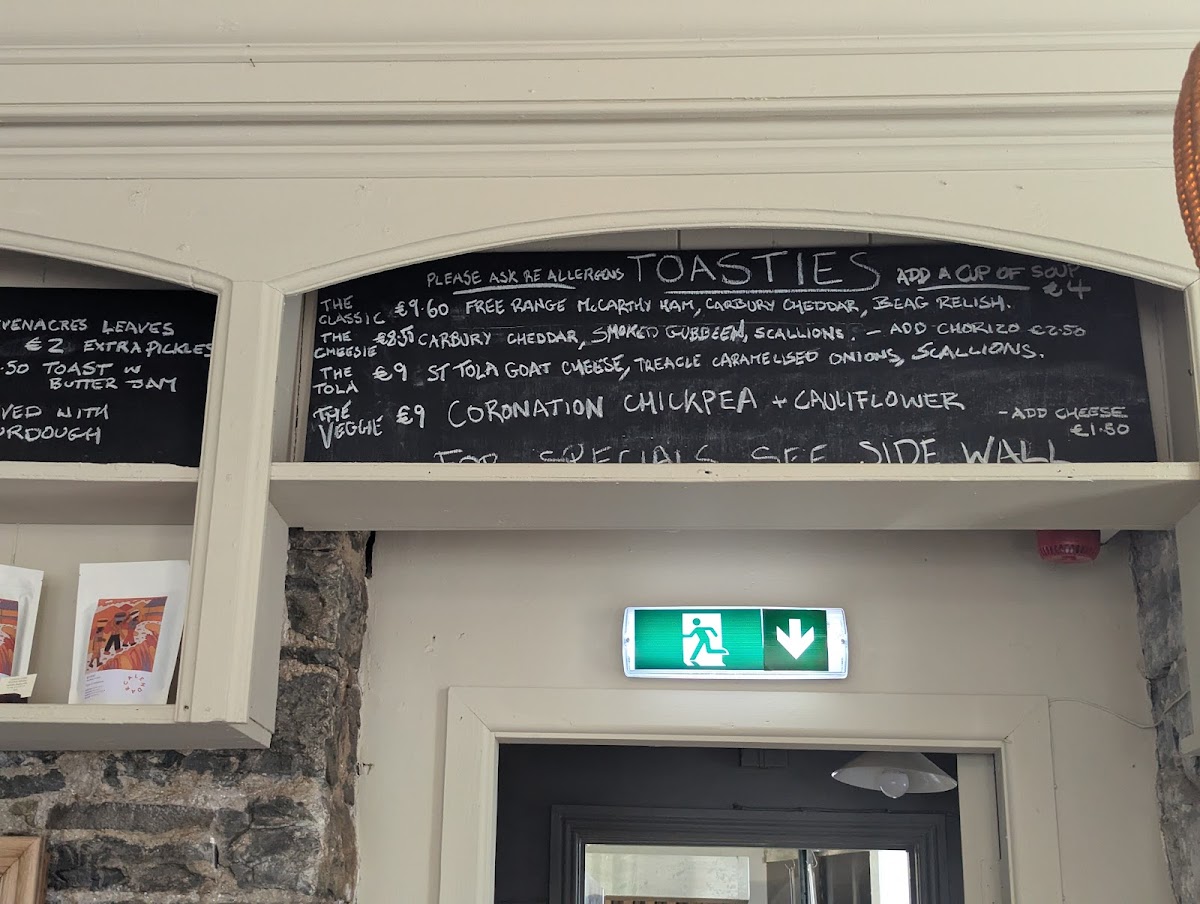 VENACRES LEAVES
€2 EXTRA PICKLES
.50 TOAST W
BUTTER JAM
VED WITH
URDOUGH
PLEASE ASK RE ALLERGENS TOASTIES ADD A CUP OF SOUP
€4
THE CLASSIC €9.60 FREE RANGE McCARTHY HAM, CARBURY CHEDDAR, BLAG RELISH.
THE CHEESIE €8.50 CARBURY CHEDDAR, SMOKED GUBBEEN, SCALLIONS. - ADD CHORIZO €2.50
THE TOLA €9 ST TOLA GOAT CHEESE, TREACLE CARAMELISED ONIONS, SCALLIONS.
THE VEGGIE €9 CORONATION CHICKPEA + CAULIFLOWER - ADD CHEESE
€1.50
FOR SPECIALS SEE SIDE WALL
CALENDAR